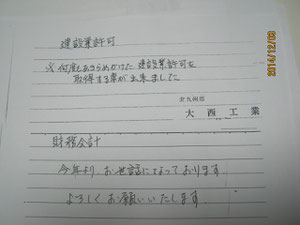 2014/12/08
建設業許可
※何度もあきらめかけた建設業許可を
取得する事が出来ました
北九州市
大西工業
財務会計
今年より、お世話になっております
よろしくお願いいたします